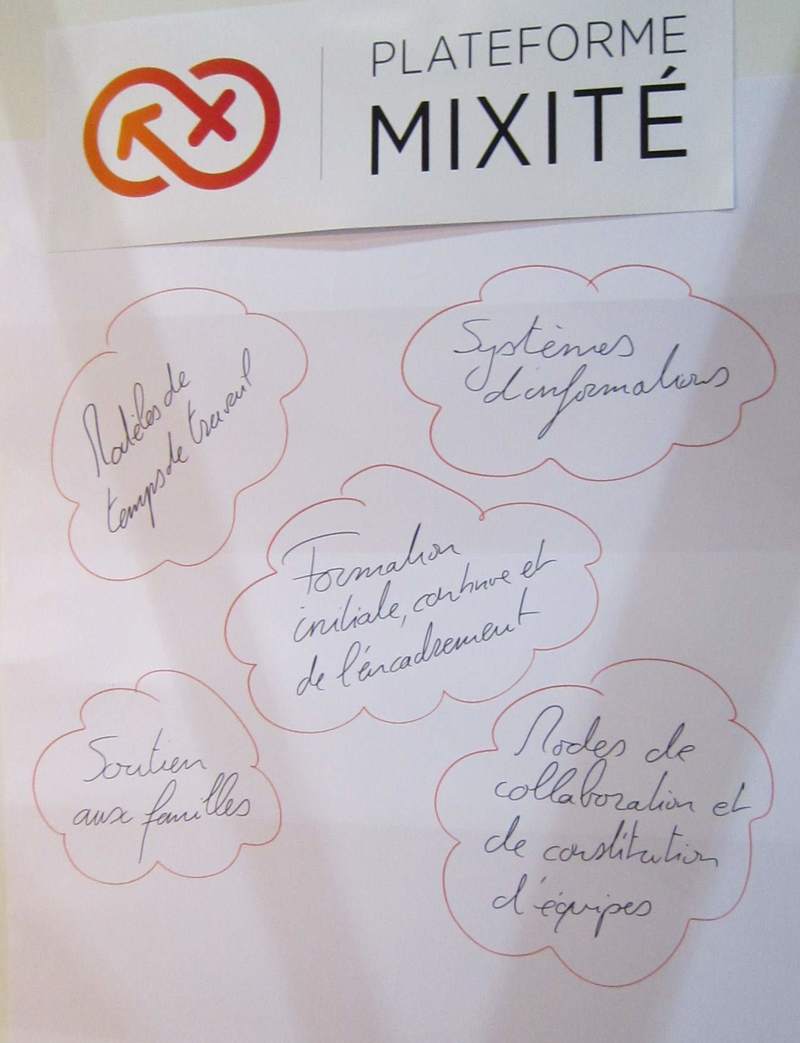 PLATEFORME
MIXITÉ
Modèles de
temps de travail
Systèmes
d'informations
Formation
initiale, continue et
de l'encadrement
Soutien
aux familles
Modes de
collaboration et
de constitution
d'équipes